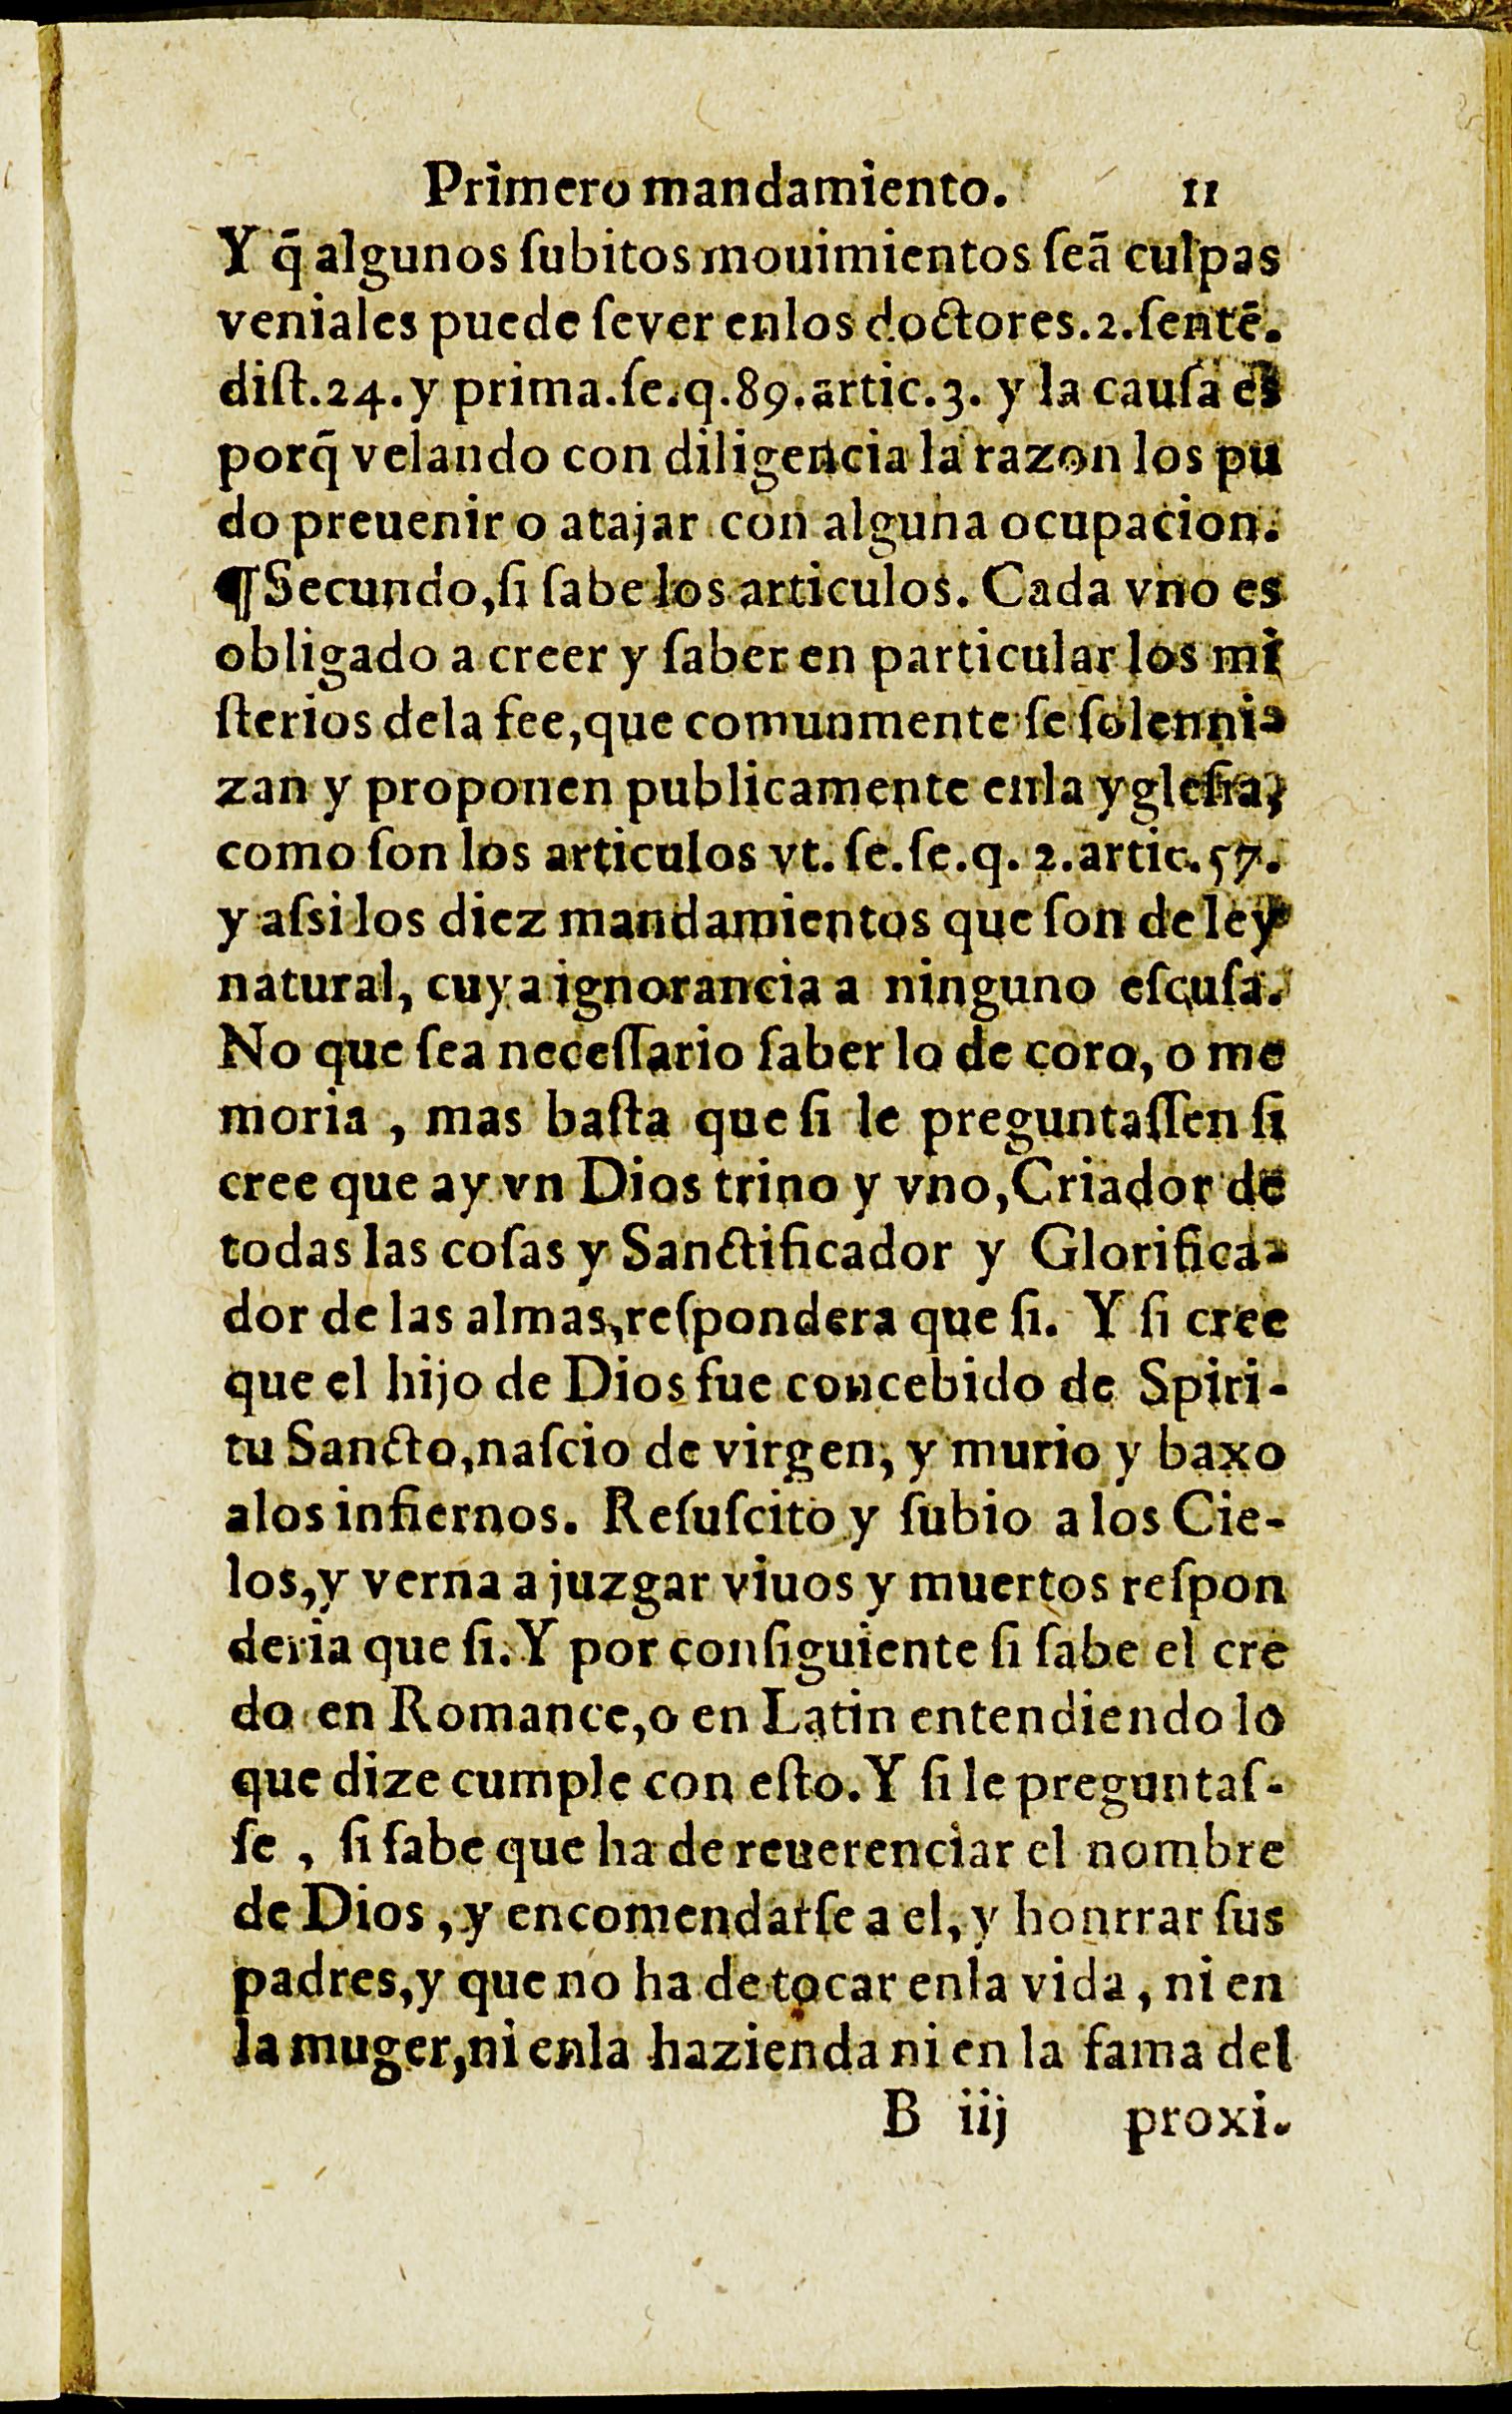 Primero mandamiento. 11
Y q̃ algunos ſubitos mouimientos ſeã culpas
veniales puede ſever enlos doctores.2.ſentẽ.
diſt.24.y prima.ſe.q.89.artic.3. y la cauſa es
porq̃ velando con diligencia la razon los pu
do preuenir o atajar con alguna ocupacion.
¶Secundo,ſi ſabe los articulos. Cada vno es
obligado a creer y ſaber en particular los mi
ſterios dela fee,que comunmente ſe ſolenni-
zan y proponen publicamente enla ygleſia,
como ſon los articulos vt. ſe.ſe.q. 2.artic.57.
y aſsi los diez mandamientos que ſon de ley
natural, cuya ignorancia a ninguno eſcuſa.
No que ſea neceſſario ſaber lo de coro, o me
moria , mas baſta que ſi le preguntaſſen ſi
cree que ay vn Dios trino y vno,Criador de
todas las coſas y Sanctificador y Glorifica-
dor de las almas,reſpondera que ſi. Y ſi cree
que el hijo de Dios fue concebido de Spiri-
tu Sancto,naſcio de virgen, y murio y baxo
alos infiernos. Reſuſcito y ſubio a los Cie-
los,y verna a juzgar viuos y muertos reſpon
deria que ſi. Y por conſiguiente ſi ſabe el cre
do en Romance,o en Latin entendiendo lo
que dize cumple con eſto. Y ſi le preguntaſ-
ſe , ſi ſabe que ha de reuerenciar el nombre
de Dios , y encomendarſe a el, y honrrar ſus
padres,y que no ha de tocar enla vida , ni en
la muger,ni enla hazienda ni en la fama del
B iij proxi-